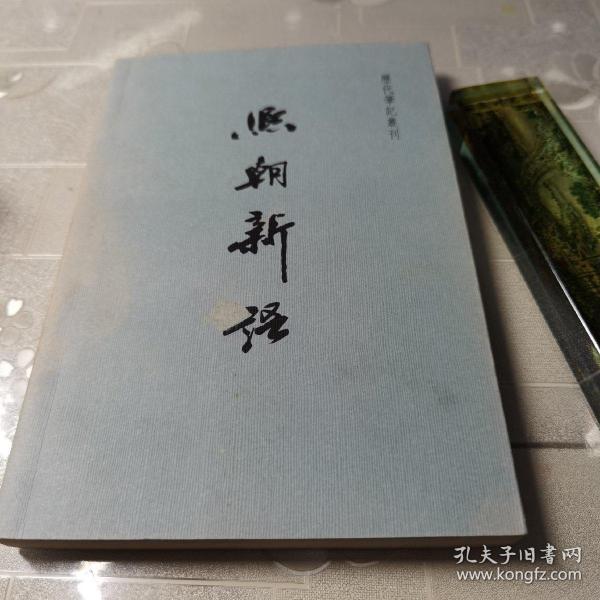 歷代筆記叢刊
熙朝新語
孔夫子旧書网
www.kongfz.com